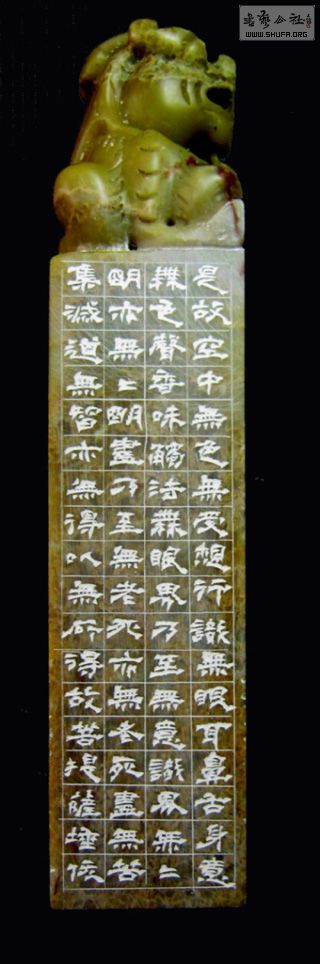 書藝公社
WWW.SHUFA.ORG
是故空中無色無受想行識無眼耳鼻舌身意
無色聲香味觸法無眼界乃至無意識界無〻
明亦無〻明盡乃至無老死亦無老死盡無苦
集滅道無智亦無得以無所得故菩提薩埵依